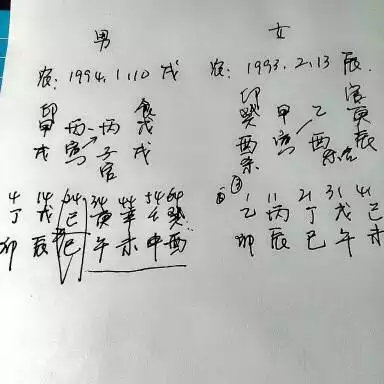 男 女
农: 1994.1.10 戌 农: 1993.2.13 辰
印 食 印 官
甲 丙 丙 戊 癸 甲 乙 庚
戌 寅 子 戌 酉 寅 酉 辰
官 杀
4 14 24 34 44 54 64 1 11 21 31 41
丁 戊 己 庚 辛 壬 癸 乙 丙 丁 戊 己
卯 辰 巳 午 未 申 酉 卯 辰 巳 午 未